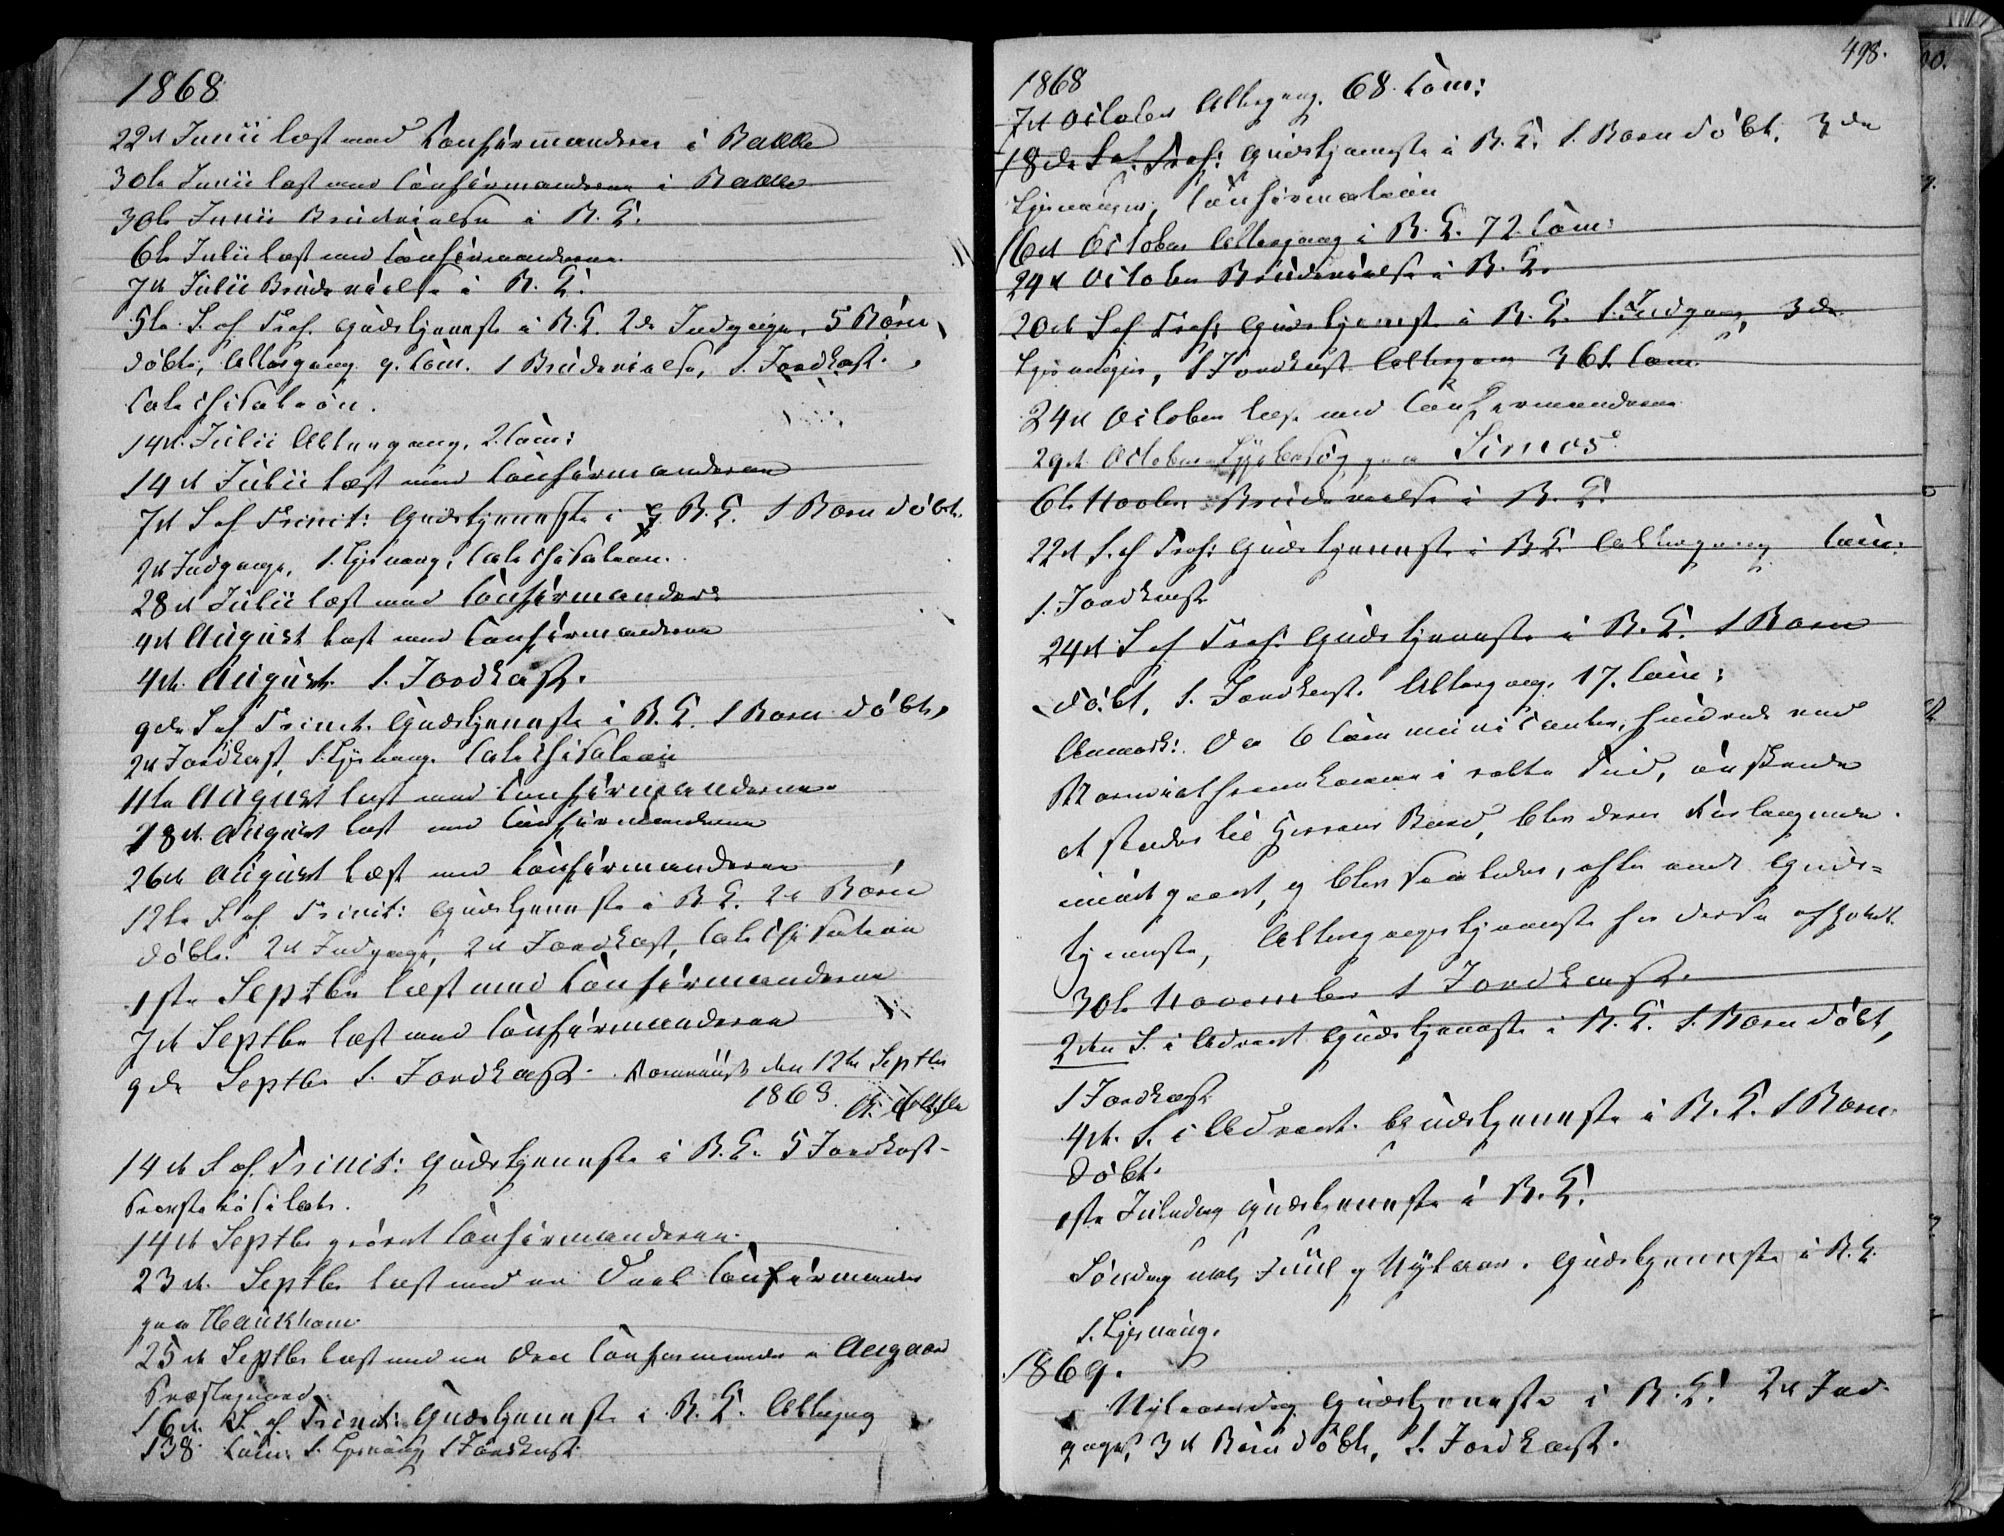 1868
22d Junii læst med Confirmanderne i Bakke
30te Junii læst med Confirmanderne i Bakke
30te Junii Brudevielse i B. K.
6te Julii læst med Confirmanderne
7d Julii Brudevielse i B. K.
5te S. ef. Tref. Gudstjeneste i B. K. 2de Indgange, 5 Børn
døbte, Altergang 9. Com. 1 Brudevielse, 1. Jordkast.
Catechisation.
14d. Julii Altergang. 2. Com:
14d Julii læst med Confirmanderne
7d S ef Trinit: Gudstjeneste i B. K. 1 Barn døbt.
2d Indgange, 1. Introd., Catechisation.
28d Julii læst med Confirmander
4d August læst med Confirmanderne
4d. August. 1. Jordkast.
9de S ef Trinit. Gudstjeneste i B. K. 1 Barn døbt,
2d Jordkast, Catechisation
11te August læst med Confirmanderne
18d. August læst med Confirmanderne
26d August læst med Confirmanderne
12te S. ef. Trinit: Gudstjeneste i B. K. 2d Børn
døbte. 2d Indgange, 2d Jordkast, Catechisation
1ste Septbr læst med Confirmanderne
7d Septbr læst med Confirmanderne
9de Septbr 1. Jordkast. den 12te Septbr
1868.
14d S ef. Trinit: Gudstjeneste i B. K. 5 Jordkast
14d Septbr prøvet Confirmanderne.
23d. Septbr læst med en Deel Confirmander
paa Haukham
25d Septbr læst med en Deel Confirmander i Augaard
Præstegaard
16d. S. ef Trinit: Gudstjeneste i B. K. Altergang
138 Com. 1 Jordkast.
498.
1868
7d October Altergang. 68. Com:
18de S ef. Tref: Gudstjeneste i B. K. 1. Barn døbt, 3de
Confirmation
16d October Altergang i B. K. 72. Com:
24d October Brudevielse i B. K.
20d S ef Tref: Gudstjeneste i B. K. 1. Indgang, 3de
1 Jordkast Altergang Com
24d October læst med Confirmanderne
29d October Sygebesøg paa Simos
6te Novbr Brudevielse i B. K.
22d S. ef Tref: Gudstjeneste i B. K. Altergang Com:
1. Jordkast
24d S ef Tref. Gudstjeneste i B. K. 1 Barn
døbt, 1. Jordkast. Altergang. 17. Com:
Anmærk: Da 6 Communicanter, hindrede ved
at komme i rette Tid, ønskede
at stædes til Herrens Bord, blev deres Forlangende
imødegaaet, og blev saaledes, efter endt Guds=
tjeneste, Altergangstjeneste for disse afholdt
30te November 1 Jordkast.
2den S. i Advent Gudstjeneste i B. K. 1. Barn døbt,
1 Jordkast
4d. S. i Advent. Gudstjeneste i B. K. 1 Barn
døbt.
1ste Juledag Gudstjeneste i B. K.
Søndag mel. Juul og Nytaar. Gudstjeneste i B. K.
1869.
Nytaarsdag Gudstjeneste i B. K. 2d Ind-
gange, 3d Børn døbte, 1. Jordkast.